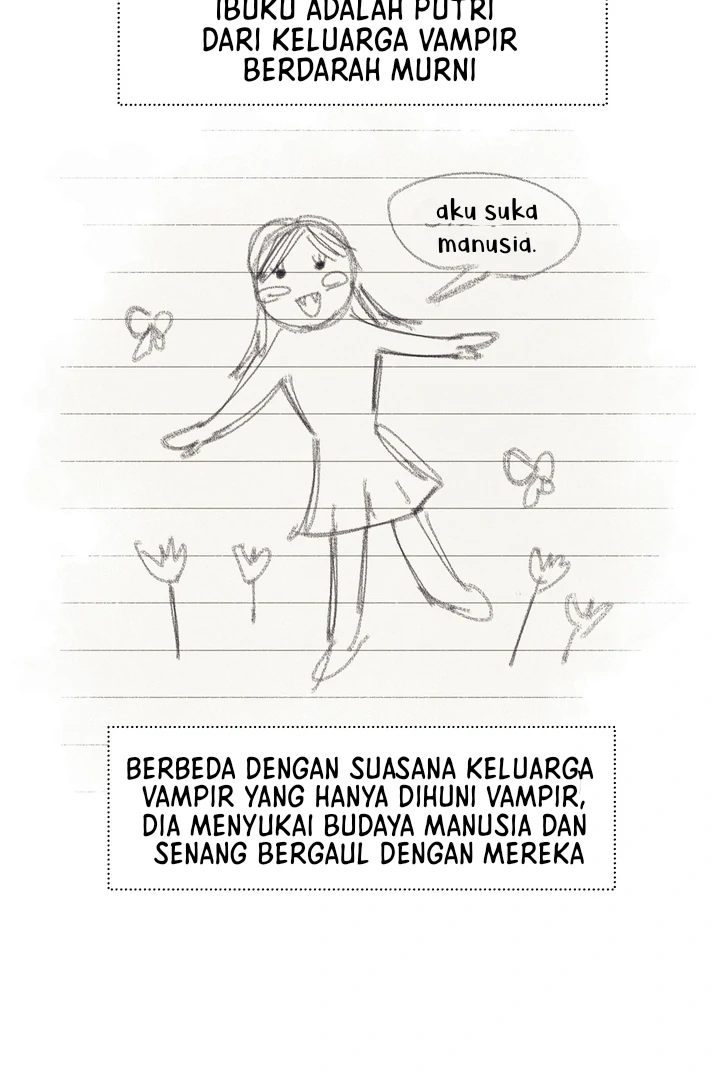 IBUKU ADALAH PUTRI
DARI KELUARGA VAMPIR
BERDARAH MURNI
aku suka
manusia.
BERBEDA DENGAN SUASANA KELUARGA
VAMPIR YANG HANYA DIHUNI VAMPIR,
DIA MENYUKAI BUDAYA MANUSIA DAN
SENANG BERGAUL DENGAN MEREKA